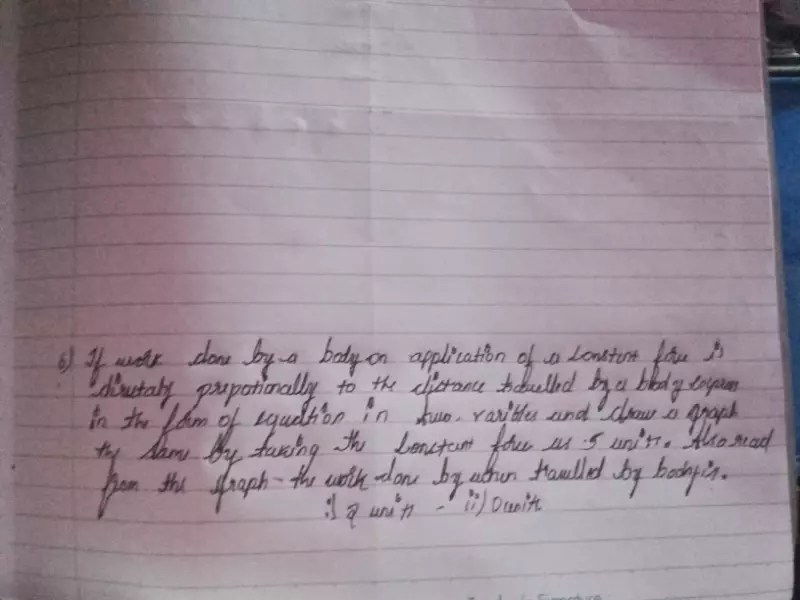 6) If work done by a body on application of a constent forse is
dirutaly prepotionally to the distance travelled by a body express
in the form of equation in two varibles and draw a graph
the same by taking the constant forse as 5 units. Also read
from the graph - the work done by when travelled by body is.
i) 2 units - ii) 0 unit